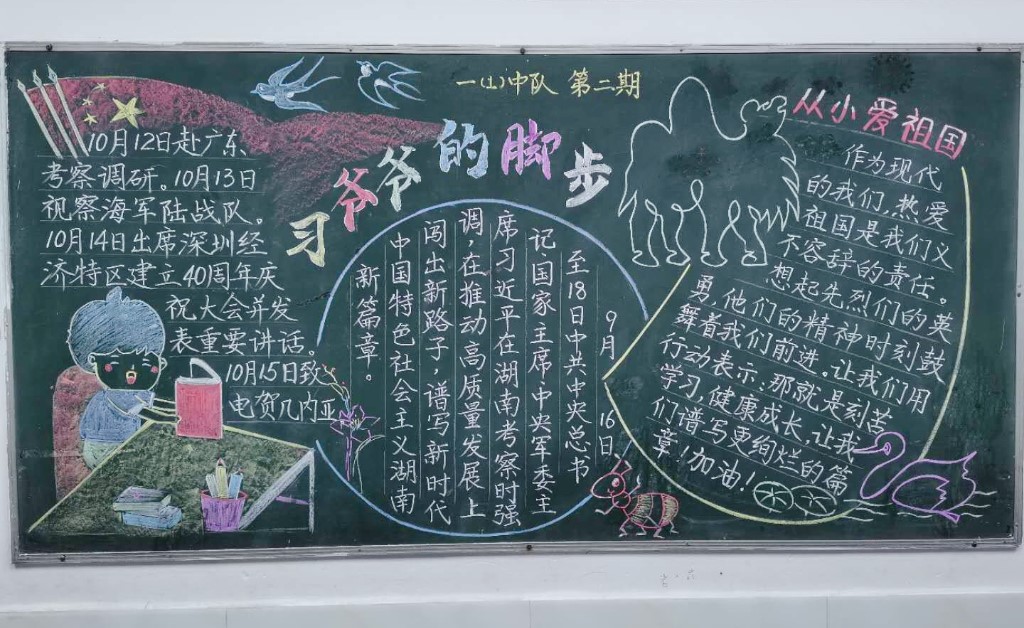 一(1)中队 第二期
习爷爷的脚步
10月12日赴广东
考察调研。10月13日
视察海军陆战队。
10月14日出席深圳经
济特区建立40周年庆
祝大会并发
表重要讲话。
10月15日致
电贺几内亚
9月16日
至18日中共中央总书
记、国家主席、中央军委主
席习近平在湖南考察时强
调，在推动高质量发展上
闯出新路子，谱写新时代
中国特色社会主义湖南
新篇章。
从小爱祖国
作为现代
的我们，热爱
祖国是我们义
不容辞的责任。
想起先烈们的英
勇，他们的精神时刻鼓
舞着我们前进。让我们用
行动表示：那就是刻苦
学习，健康成长，让我
们谱写更绚烂的篇
章！加油！